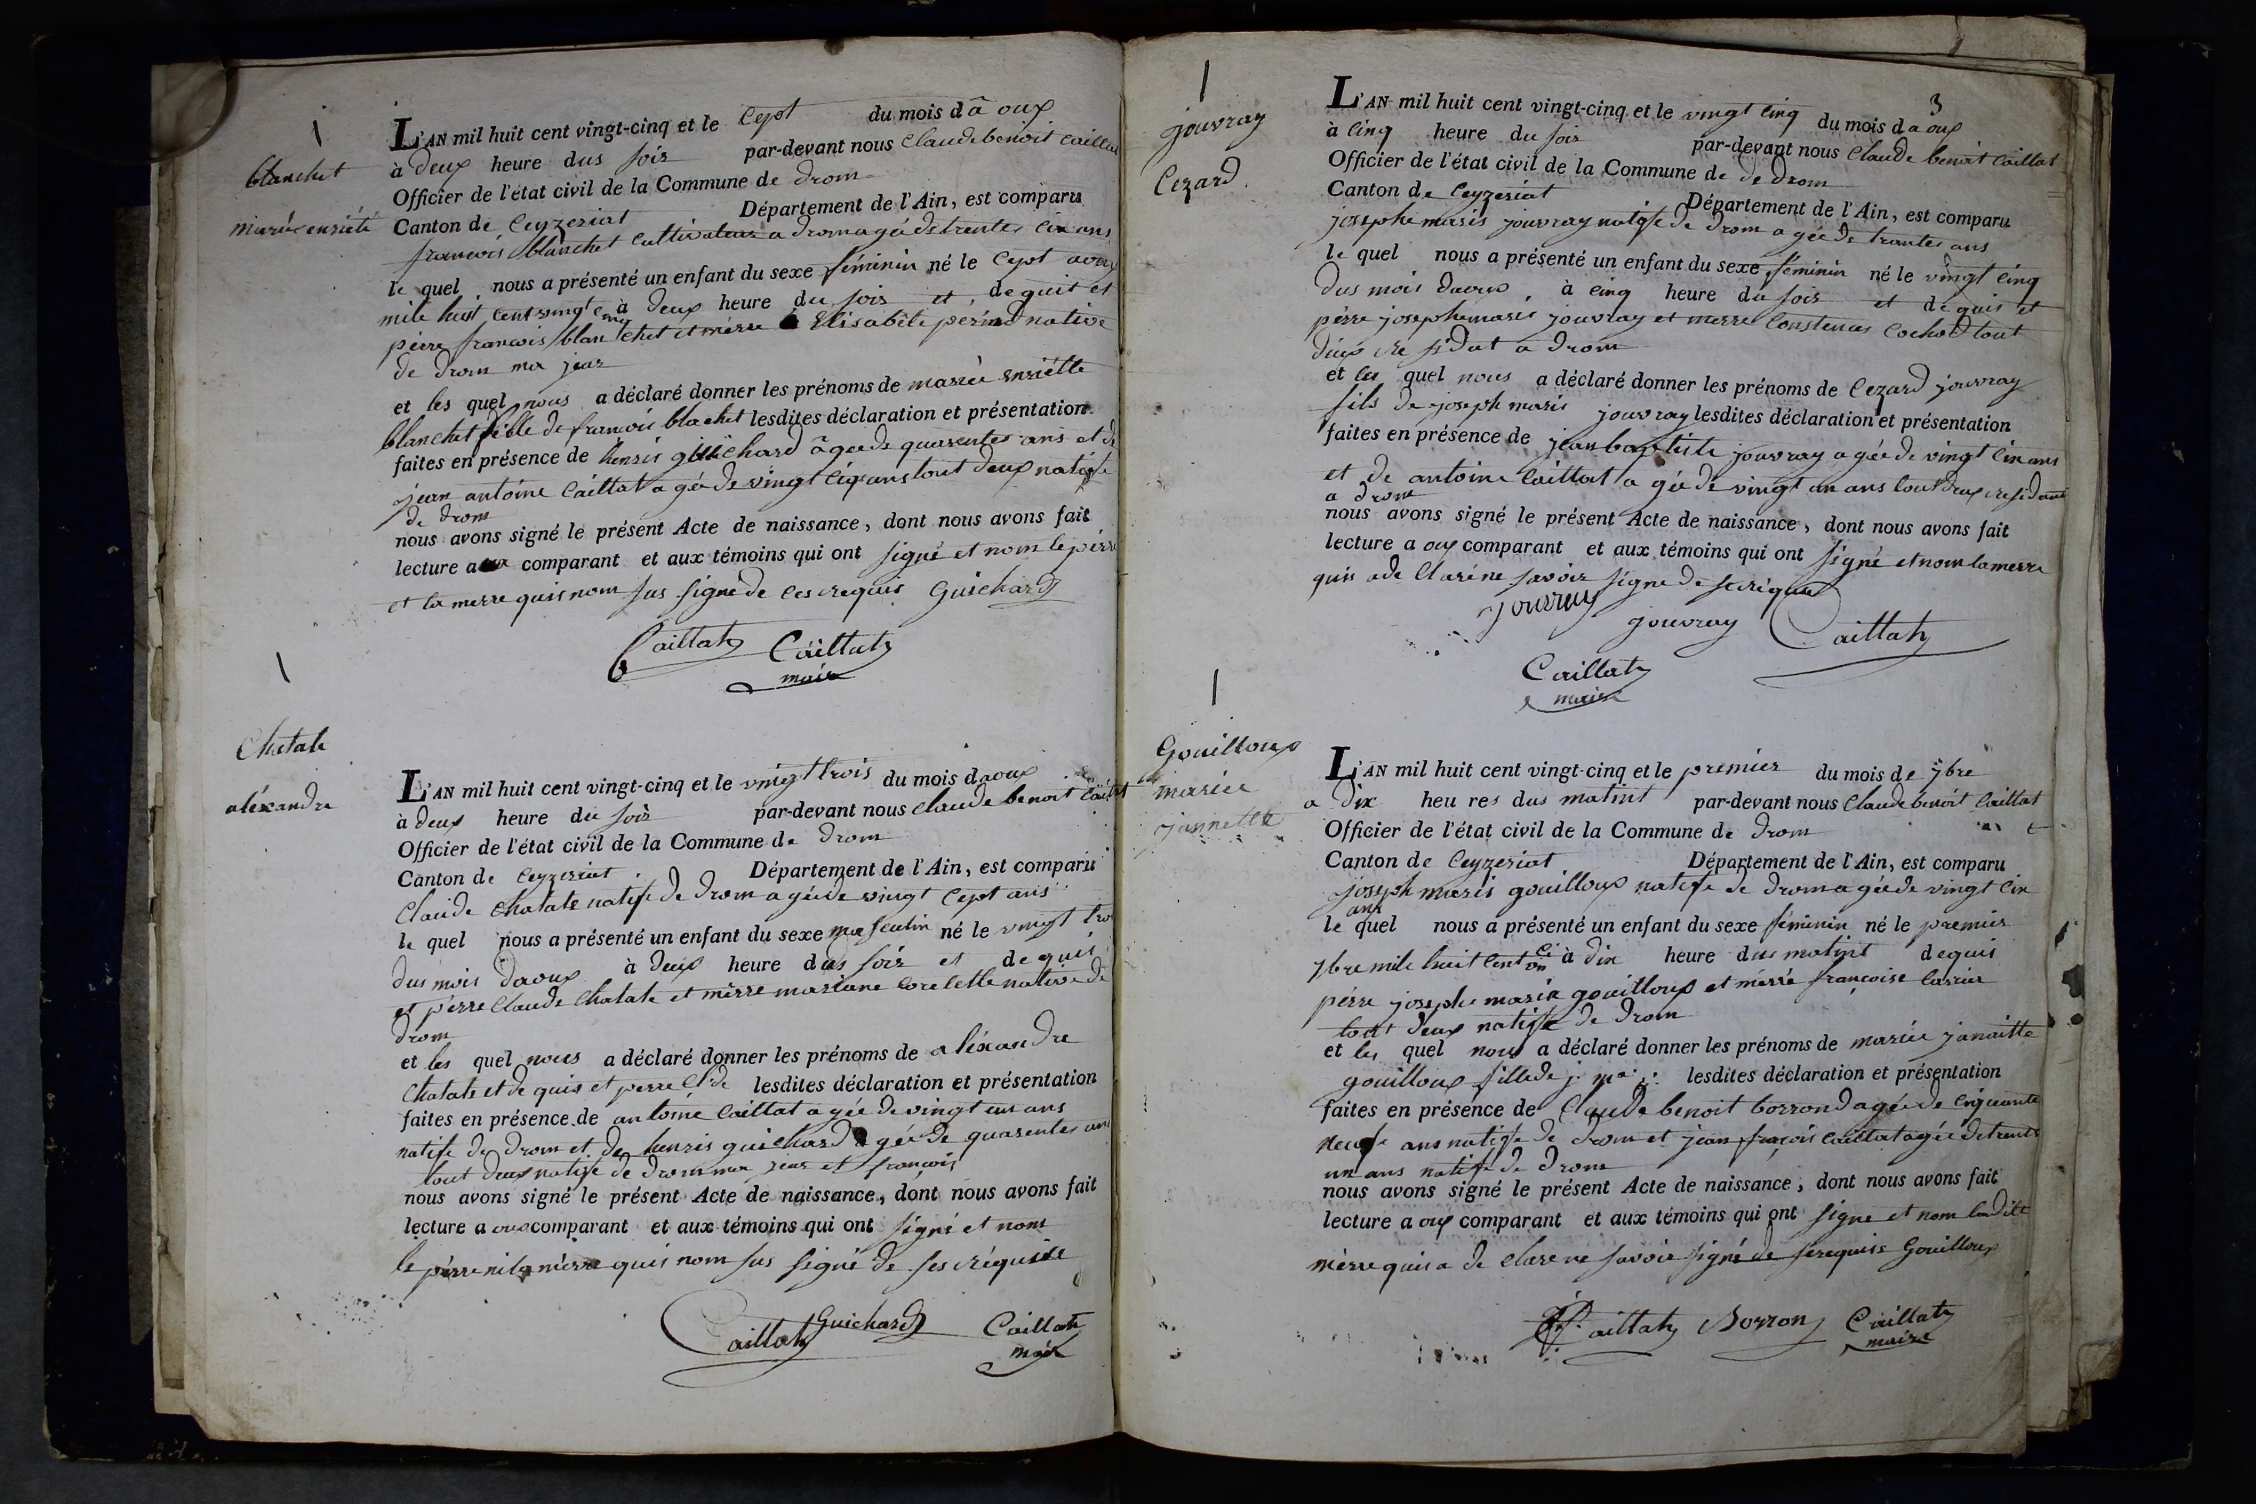 blanchet
mariée enriété
L'AN mil huit cent vingt-cinq et le Cept du mois d'a oux
à deux heure dus soir par-devant nous Claude benoit Caillat
Officier de l'état civil de la Commune de drom
Canton de Ceyzeriat Département de l'Ain, est comparu
francois blanchet cultivateur a drom agé de trentes cin ans
le quel nous a présenté un enfant du sexe féminin né le Cept aoux
mile huit cent vingt cinq à deux heure du soir et de quit et
pèrre francois blanchet et mèrre Elisabéte périnod native
de drom ma jeur
et les quel nous a déclaré donner les prénoms de mariée enriétte
blanchet fille de francois blachet lesdites déclaration et présentation
faites en présence de henris guichard agée de quarentes ans et de
jean antoine Caillat agé de vingt ciq ans tout deux natife
de drom
nous avons signé le présent Acte de naissance, dont nous avons fait
lecture a comparant et aux témoins qui ont signé et nom le pèrre
et la merre quis nom sus signé de ces requis Guichard
Caillat Caillat
maire
Chatale
aléxandre
L'AN mil huit cent vingt-cinq et le vingt trois du mois daoux
à deux heure du soir par-devant nous claude benoit Caillat
Officier de l'état civil de la Commune de drom
Canton de Ceyzeriat Département de l'Ain, est comparu
Claude Chatale natife de drom agée de vingt Cept ans
le quel nous a présenté un enfant du sexe masculin né le vingt tro
dus mois daoux à deux heure dus soir et de quis
et pèrre Claude Chatale et mèrre mariane corelette native de
drom
et les quel nous a déclaré donner les prénoms de aléxandre
Chatale et de quis et perre Clde lesdites déclaration et présentation
faites en présence de antoine Caillat agée de vingt un ans
natife de drom et de henris guichard agée de quarentes ans
tout deux natife de drom ma jeur et francois
nous avons signé le présent Acte de naissance, dont nous avons fait
lecture a oux comparant et aux témoins qui ont signé et nom
le pèrre ni la mèrre quis nom sus signé de ses réquiste
Caillat Guichard Caillat
maire
3
jouvray
Cezard
L'AN mil huit cent vingt-cinq et le vingt cinq du mois da oux
à Cinq heure du soir par-devant nous Claude benoit Caillat
Officier de l'état civil de la Commune de de drom
Canton de Ceyzeriat Département de l'Ain, est comparu
josephe maris jouvray natife de drom agée de trantes ans
le quel nous a présenté un enfant du sexe féminin né le vingt cinq
dus mois daoux à cinq heure du soir et de quis et
pèrre josephe maris jouvray et merre Constences Cochod tout
deux re sidat a drom
et les quel nous a déclaré donner les prénoms de Cezard jouvray
fils de joseph maris jouvray lesdites déclaration et présentation
faites en présence de jean baptiste jouvray agée de vingt cin ans
et de antoine Caillat agée de vingt un ans tout deux residant
a drom
nous avons signé le présent Acte de naissance, dont nous avons fait
lecture a oux comparant et aux témoins qui ont signé et nom la merre
quis a de Clare ne savoir signe de se requis
jouvray jouvray Caillat
Caillat
maire
Gouilloux
mariée
jannette
L'AN mil huit cent vingt-cinq et le premier du mois de 7bre
a dix heu res dus matint par-devant nous Claude benoit Caillat
Officier de l'état civil de la Commune de drom
Canton de Ceyzeriat Département de l'Ain, est comparu
joseph maris gouilloux natife de drom agée de vingt cin
ans
le quel nous a présenté un enfant du sexe féminin né le premier
7bre mile huit cent à dix heure dus matint de quis
pèrre josephe maria gouilloux et mèrré françoise
tout deux natife de drom
et les quel nous a déclaré donner les prénoms de mariée janaitte
gouilloux fille de j. ma. lesdites déclaration et présentation
faites en présence de Claude benoit borrond agée de ciquante
neufe ans natife de drom et jean françois Caillat agée de trente
un ans natife de drom
nous avons signé le présent Acte de naissance, dont nous avons fait
lecture a oux comparant et aux témoins qui ont signe et nom ladite
mèrre quis a de clare ne savoir signé de se requis Gouilloux
Caillat Borron Caillat
maire